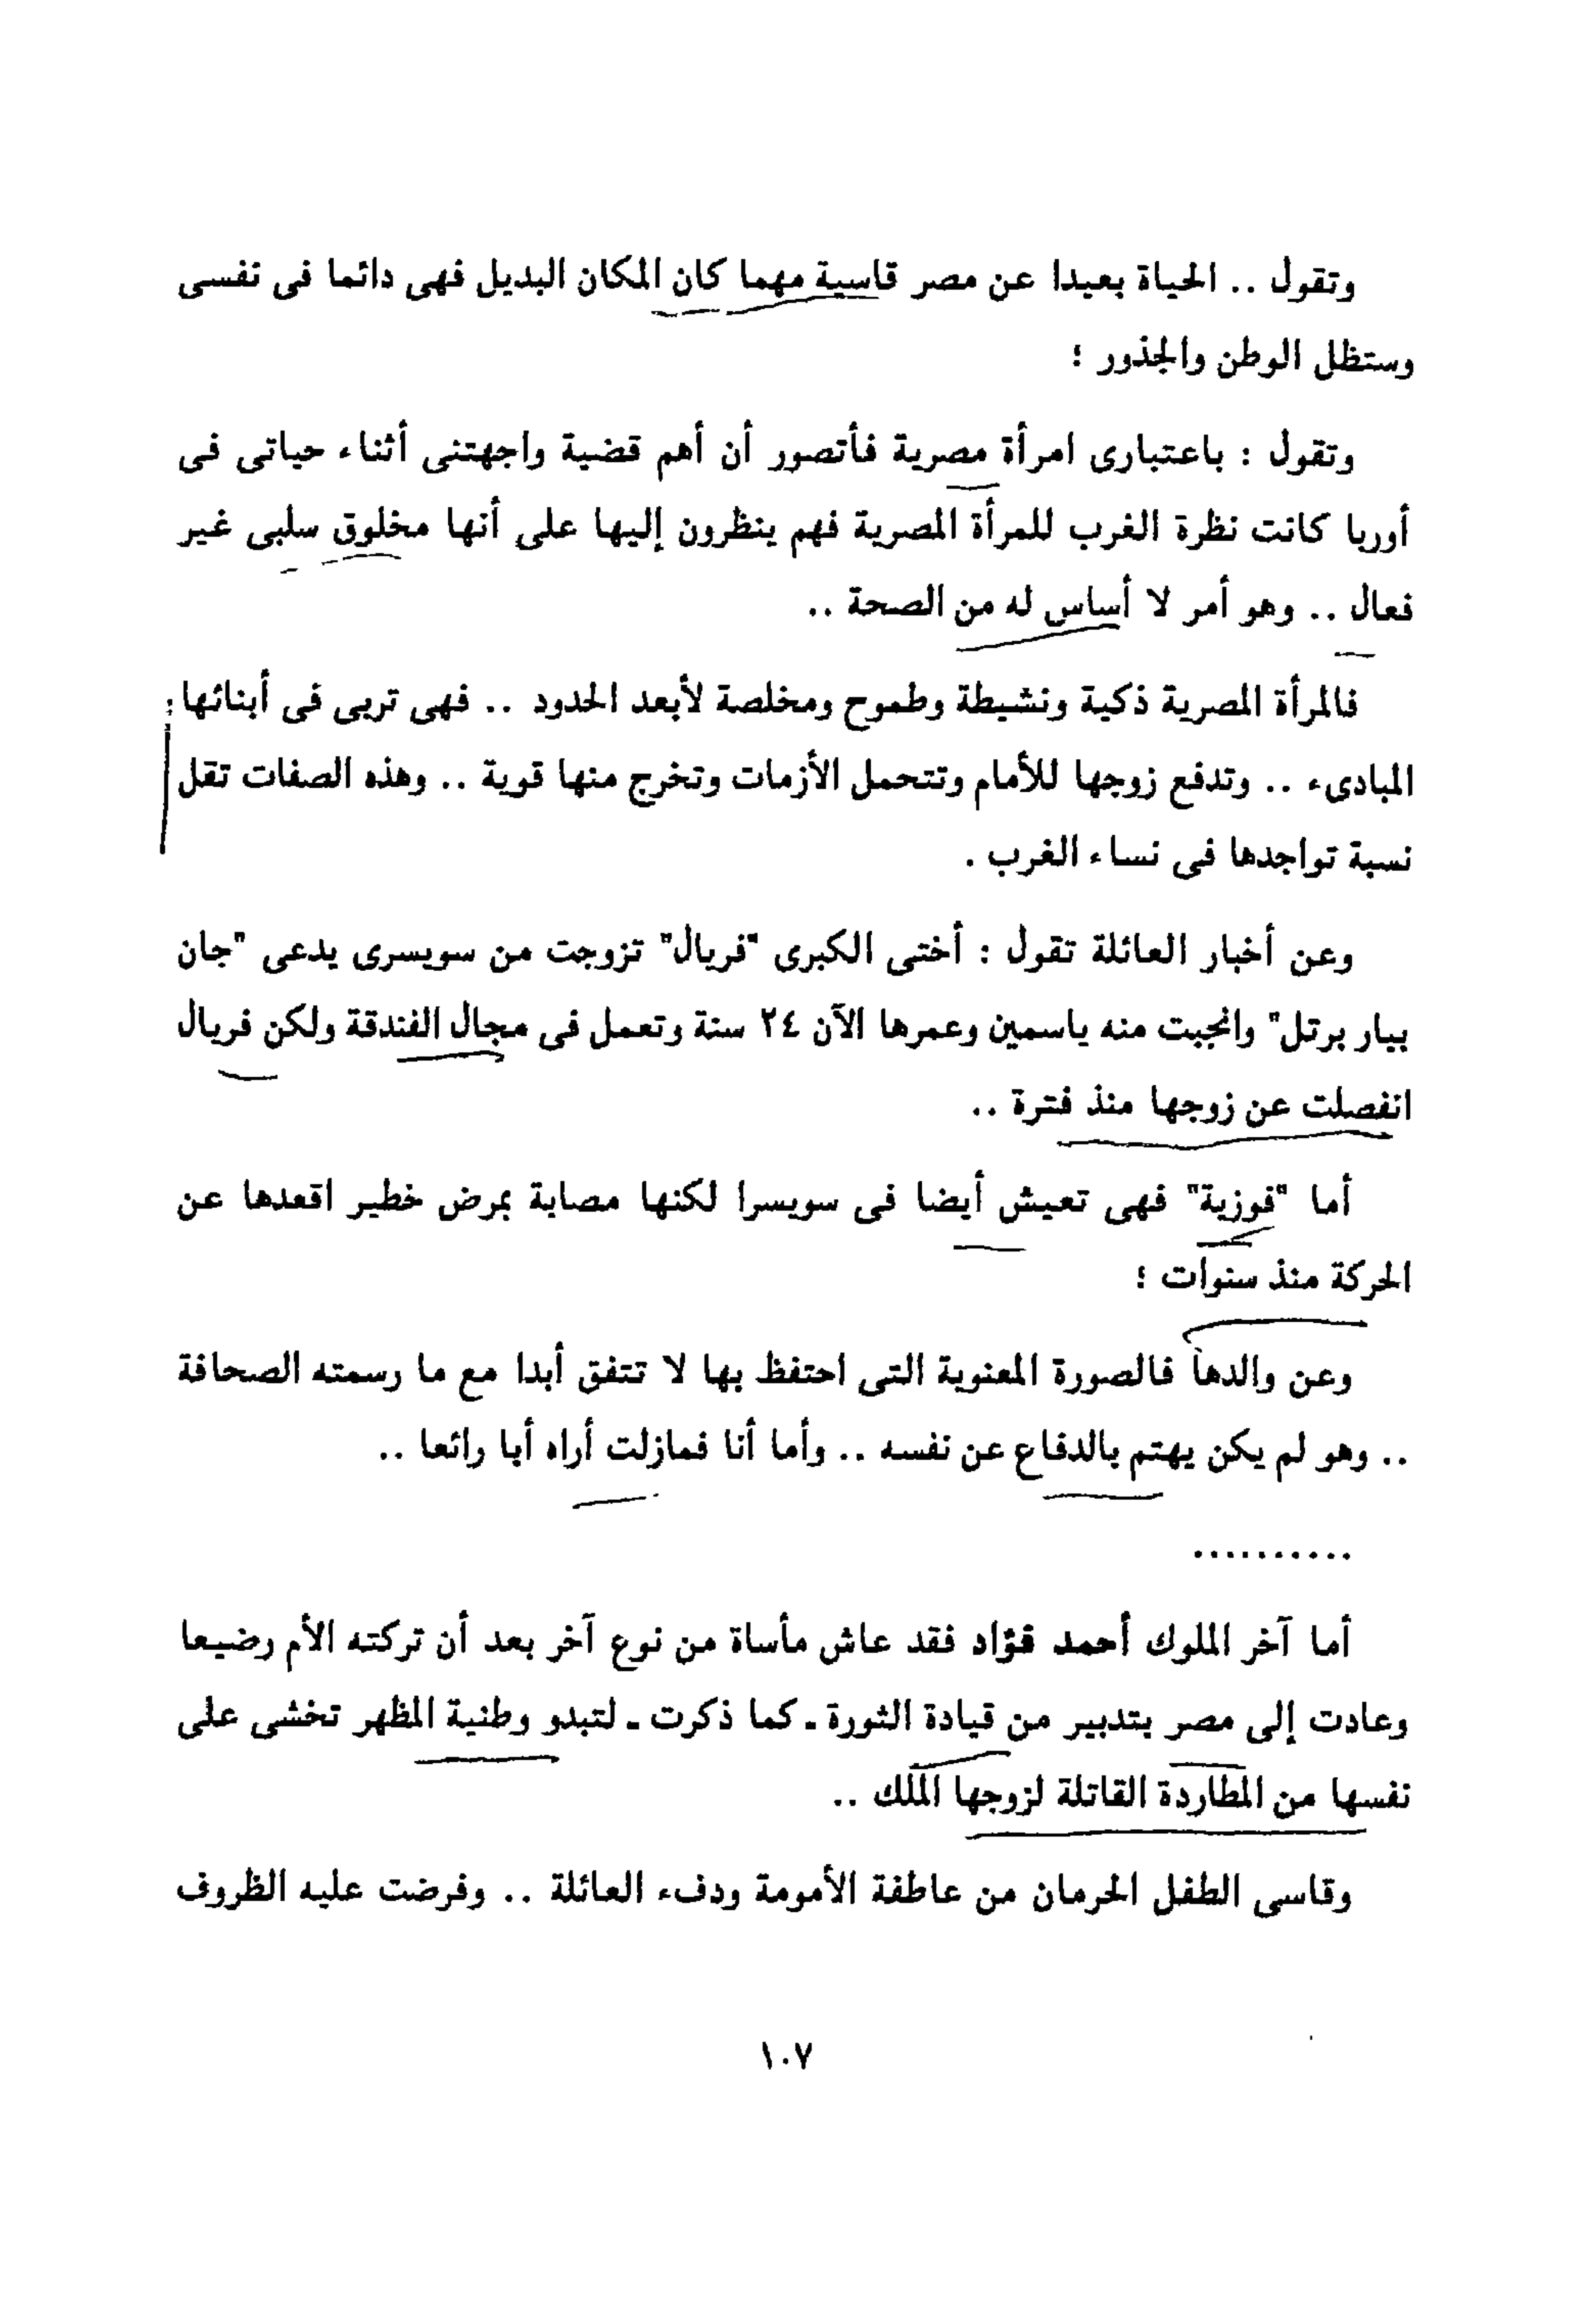 وتقول .. الحياة بعيدا عن مصر قاسية مهما كان المكان البديل فهى دائما فى نفسى
وستظل الوطن والجذور ؛
وتقول : باعتبارى امرأة مصرية فأتصور أن أهم قضية واجهتنى أثناء حياتى فى
أوربا كانت نظرة الغرب للمرأة المصرية فهم ينظرون إليها على أنها مخلوق سلبى غير
فعال .. وهو أمر لا أساس له من الصحة ..
فالمرأة المصرية ذكية ونشيطة وطموح ومخلصة لأبعد الحدود .. فهى تربى فى أبنائها
المبادىء .. وتدفع زوجها للأمام وتتحمل الأزمات وتخرج منها قوية .. وهذه الصفات تقل
نسبة تواجدها فى نساء الغرب .
وعن أخبار العائلة تقول : أختى الكبرى "فريال" تزوجت من سويسرى يدعى "جان
بيار برتل" وانجبت منه ياسمين وعمرها الآن ٢٤ سنة وتعمل فى مجال الفندقة ولكن فريال
انفصلت عن زوجها منذ فترة ..
أما "فوزية" فهى تعيش أيضا فى سويسرا لكنها مصابة بمرض خطير اقعدها عن
الحركة منذ سنوات ؛
وعن والدها فالصورة المعنوية التى احتفظ بها لا تتفق أبدا مع ما رسمته الصحافة
.. وهو لم يكن يهتم بالدفاع عن نفسه .. وأما أنا فمازلت أراه أبا رائعا ..
..........
أما آخر الملوك أحمد فؤاد فقد عاش مأساة من نوع آخر بعد أن تركته الأم رضيعا
وعادت إلى مصر بتدبير من قيادة الثورة ـ كما ذكرت ـ لتبدو وطنية المظهر تخشى على
نفسها من المطاردة القاتلة لزوجها الملك ..
وقاسى الطفل الحرمان من عاطفة الأمومة ودفء العائلة .. وفرضت عليه الظروف
١٠٧